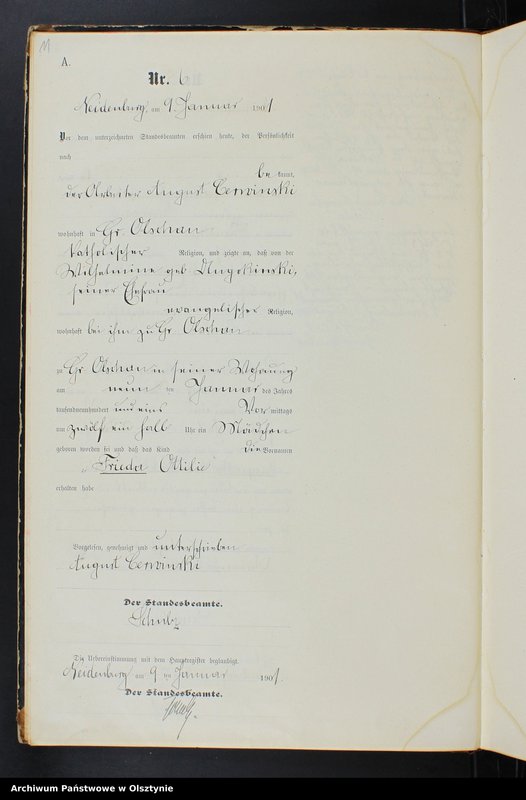 11
A.
Nr. 6
Neidenburg, am 9. Januar 1901
Vor dem unterzeichneten Standesbeamten erschien heute, der Persönlichkeit
nach
be kannt,
der Arbeiter August Cerwinski
wohnhaft in Gr. Olschau
katholischer Religion, und zeigte an, daß von der
Wilhelmine geb.
seiner Ehefrau
evangelischer Religion,
wohnhaft bei ihm zu Gr Olschau
zu Gr. Olschau in seiner Wohnung
am neun ten Januar des Jahres
tausendneunhundert und eins Vor mittags
um zwölf ein halb Uhr ein Mädchen
geboren worden sei und daß das Kind die Vornamen
Frieda Ottilie
erhalten habe
Vorgelesen, genehmigt und unterschrieben
August Cerwinski
Der Standesbeamte.
Schulz
Die Uebereinstimmung mit dem Hauptregister beglaubigt.
Neidenburg am 9 ten Januar 1901.
Der Standesbeamte.
Archiwum Państwowe w Olsztynie